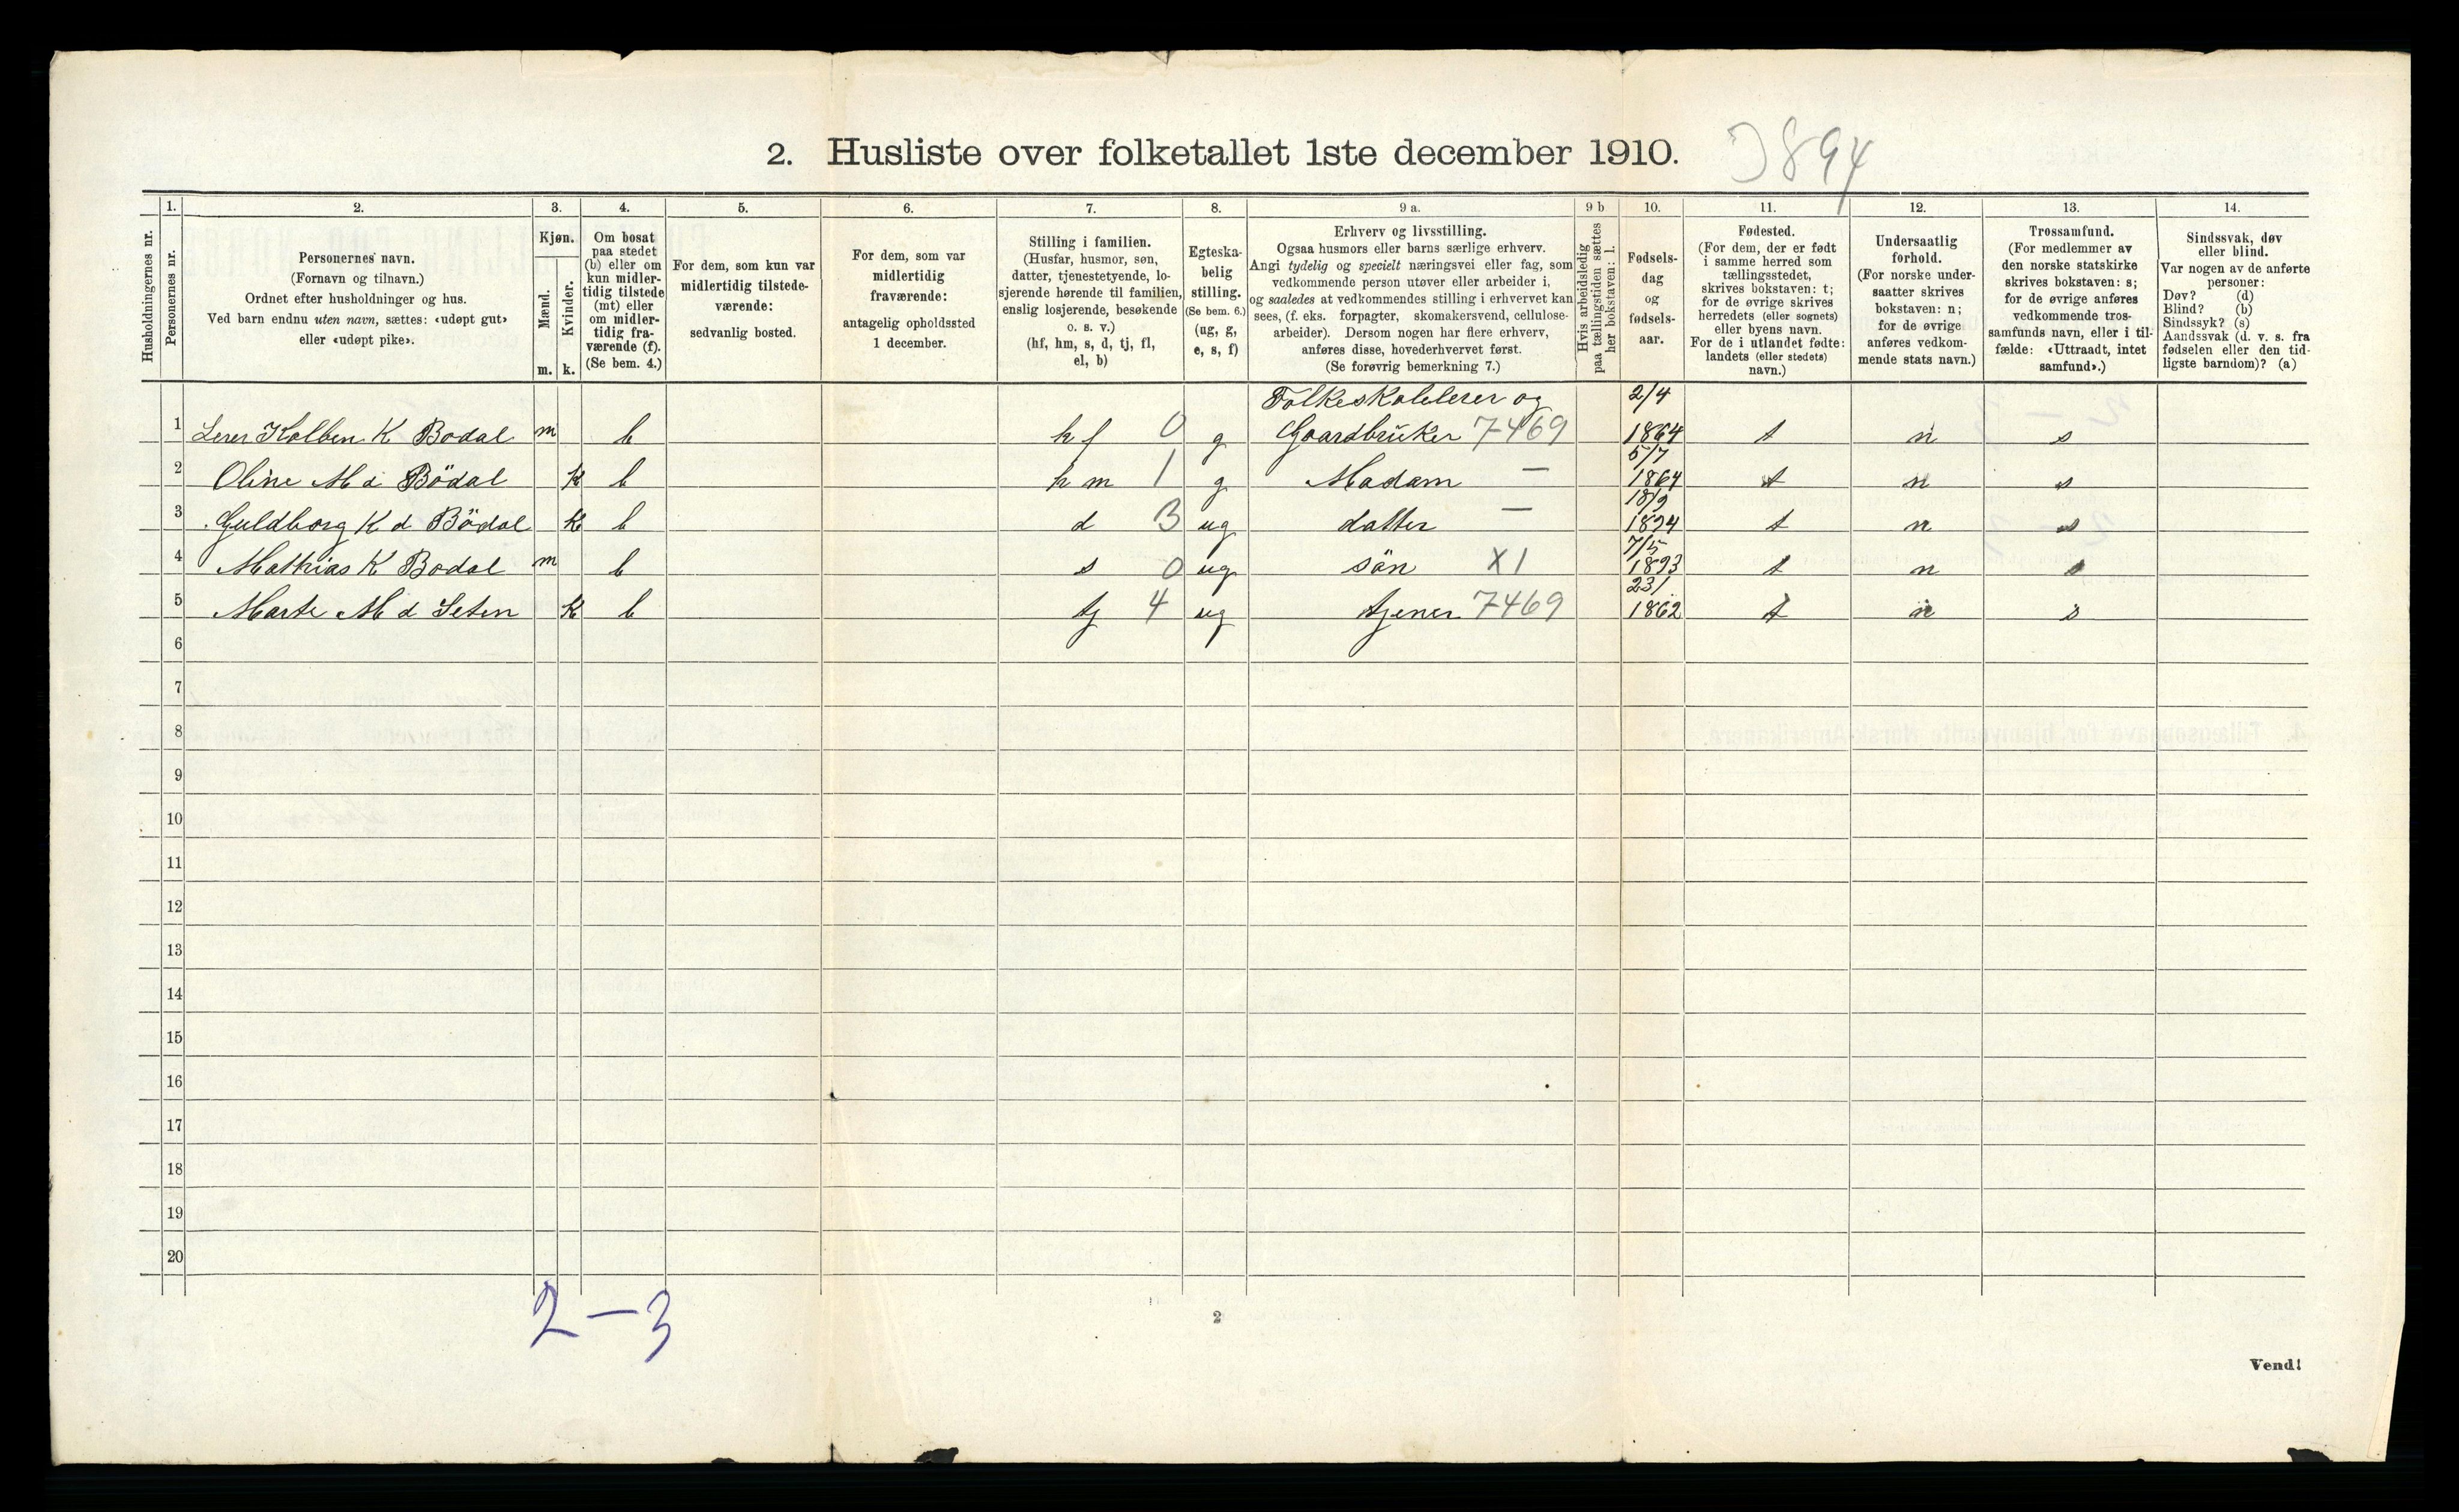 2. Husliste over folketallet 1ste december 1910.
Husholdningernes nr.
1.
Personernes nr.
2.
Personernes navn.
(Fornavn og tilnavn.)
Ordnet efter husholdninger og hus.
Ved barn endnu uten navn, sættes: «udøpt gut»
eller «udøpt pike».
3.
Kjøn.
Mænd.
Kvinder.
m. k.
4.
Om bosat
paa stedet
(b) eller om
kun midler-
tidig tilstede
(mt) eller
om midler-
tidig fra-
værende (f).
(Se bem. 4.)
5.
For dem, som kun var
midlertidig tilstede-
værende:
sedvanlig bosted.
6.
For dem, som var
midlertidig
fraværende:
antagelig opholdssted
1 december.
7.
Stilling i familien.
(Husfar, husmor, søn,
datter, tjenestetyende, lo-
sjerende hørende til familien,
enslig losjerende, besøkende
o. s. v.)
(hf, hm, s, d, tj, fl,
el, b)
8.
Egteska-
belig
stilling.
(Se bem. 6.)
(ug, g,
e, s, f)
9 a.
Erhverv og livsstilling.
Ogsaa husmors eller barns særlige erhverv.
Angi tydelig og specielt næringsvei eller fag, som
vedkommende person utøver eller arbeider i,
og saaledes at vedkommendes stilling i erhvervet kan
sees, (f. eks. forpagter, skomakersvend, cellulose-
arbeider). Dersom nogen har flere erhverv,
anføres disse, hovederhvervet først.
(Se forøvrig bemerkning 7.)
9 b
Hvis arbeidsledig
paa tællingstiden sættes
her bokstaven: l.
10.
Fødsels-
dag
og
fødsels-
aar.
11.
Fødested.
(For dem, der er født
i samme herred som
tællingsstedet,
skrives bokstaven: t;
for de øvrige skrives
herredets (eller sognets)
eller byens navn.
For de i utlandet fødte:
landets (eller stedets)
navn.)
12.
Undersaatlig
forhold.
(For norske under-
saatter skrives
bokstaven: n;
for de øvrige
anføres vedkom-
mende stats navn.)
13.
Trossamfund.
(For medlemmer av
den norske statskirke
skrives bokstaven: s;
for de øvrige anføres
vedkommende tros-
samfunds navn, eller i til-
fælde: «Uttraadt, intet
samfund».)
14.
Sindssvak, døv
eller blind.
Var nogen av de anførte
personer:
Døv? (d)
Blind? (b)
Sindssyk? (s)
Aandssvak (d. v. s. fra
fødselen eller den tid-
ligste barndom)? (a)
Folkeskolelerer og 2/4
1 Lerer Kolben K Bodal m b hf 0 g Gaardbruker 7469 1864 t n s
5/7
2 Oline M d Bödal k b hm 1 g Madam — 1864 t n s
18/9
3 Guldborg K d Bödal k b d 3 ug datter — 1894 t n s
7/5
4 Mathias K Bodal m b s 0 ug sön X1 1893 t n s
23/
5 Marte M d Seten k b tj 4 ug tjener 7469 1862 t n s
6
7
8
9
10
11
12
13
14
15
16
17
18
19
20
2–3
2
Vend!